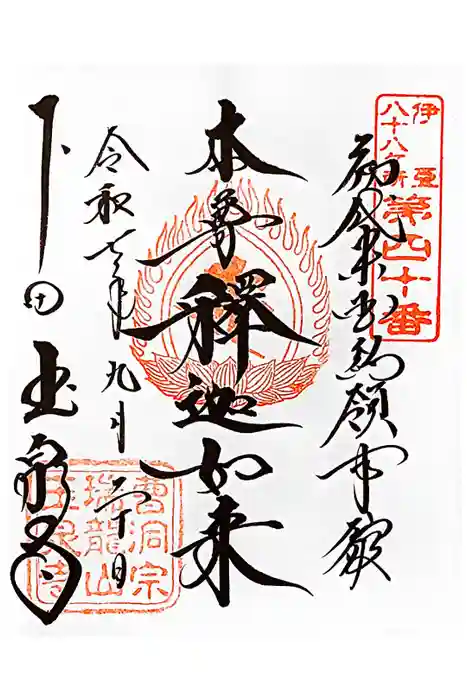 伊豆
八十八ヶ所
第四十番
本尊釋迦如来
令和七年九月二十日
下田 玉泉寺
曹洞宗
瑞龍山
玉泉寺